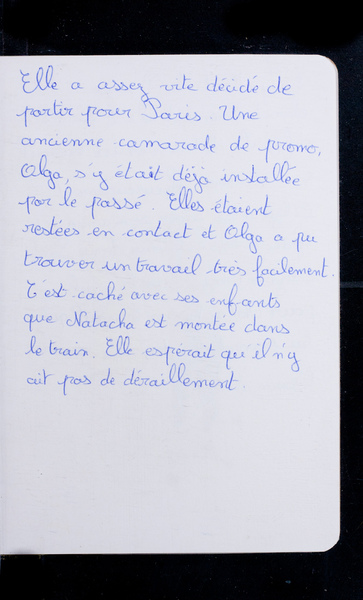 Elle a assez vite décidé de
partir pour Paris. Une
ancienne camarade de promo,
Olga, s'y était déjà installée
par le passé. Elles étaient
restées en contact et Olga a pu
trouver un travail très facilement.
C'est caché avec ses enfants
que Natacha est montée dans
le train. Elle esperait qu'il n'y
ait pas de déraillement.